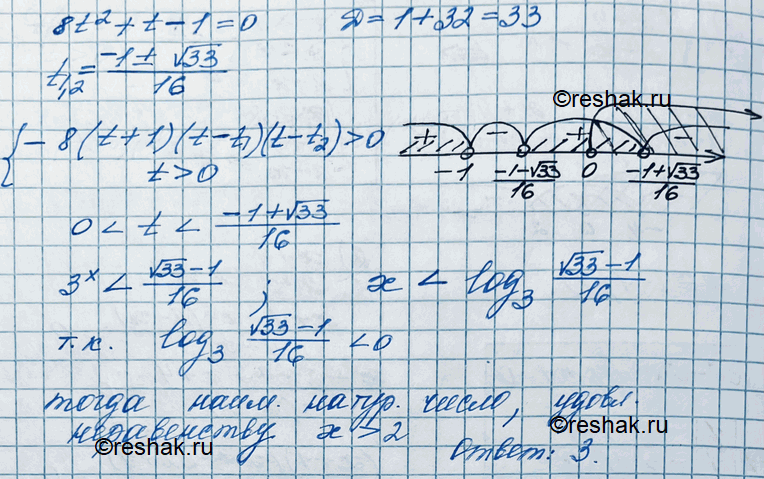 8t² + t - 1 = 0    D = 1 + 32 = 33
t₁,₂ = (-1 ± √33)/16
©reshak.ru
{ - 8(t+1)(t-t₁)(t-t₂) > 0
t > 0
+ - + -
-1 (-1-√33)/16 0 (-1+√33)/16
0 < t < (-1+√33)/16
3ˣ < (√33-1)/16 ; x < log₃ (√33-1)/16
т.к. log₃ (√33-1)/16 < 0
тогда наим. натур. число, удовл.
недавенству x > 2
©reshak.ru
©reshak.ru
Ответ: 3.